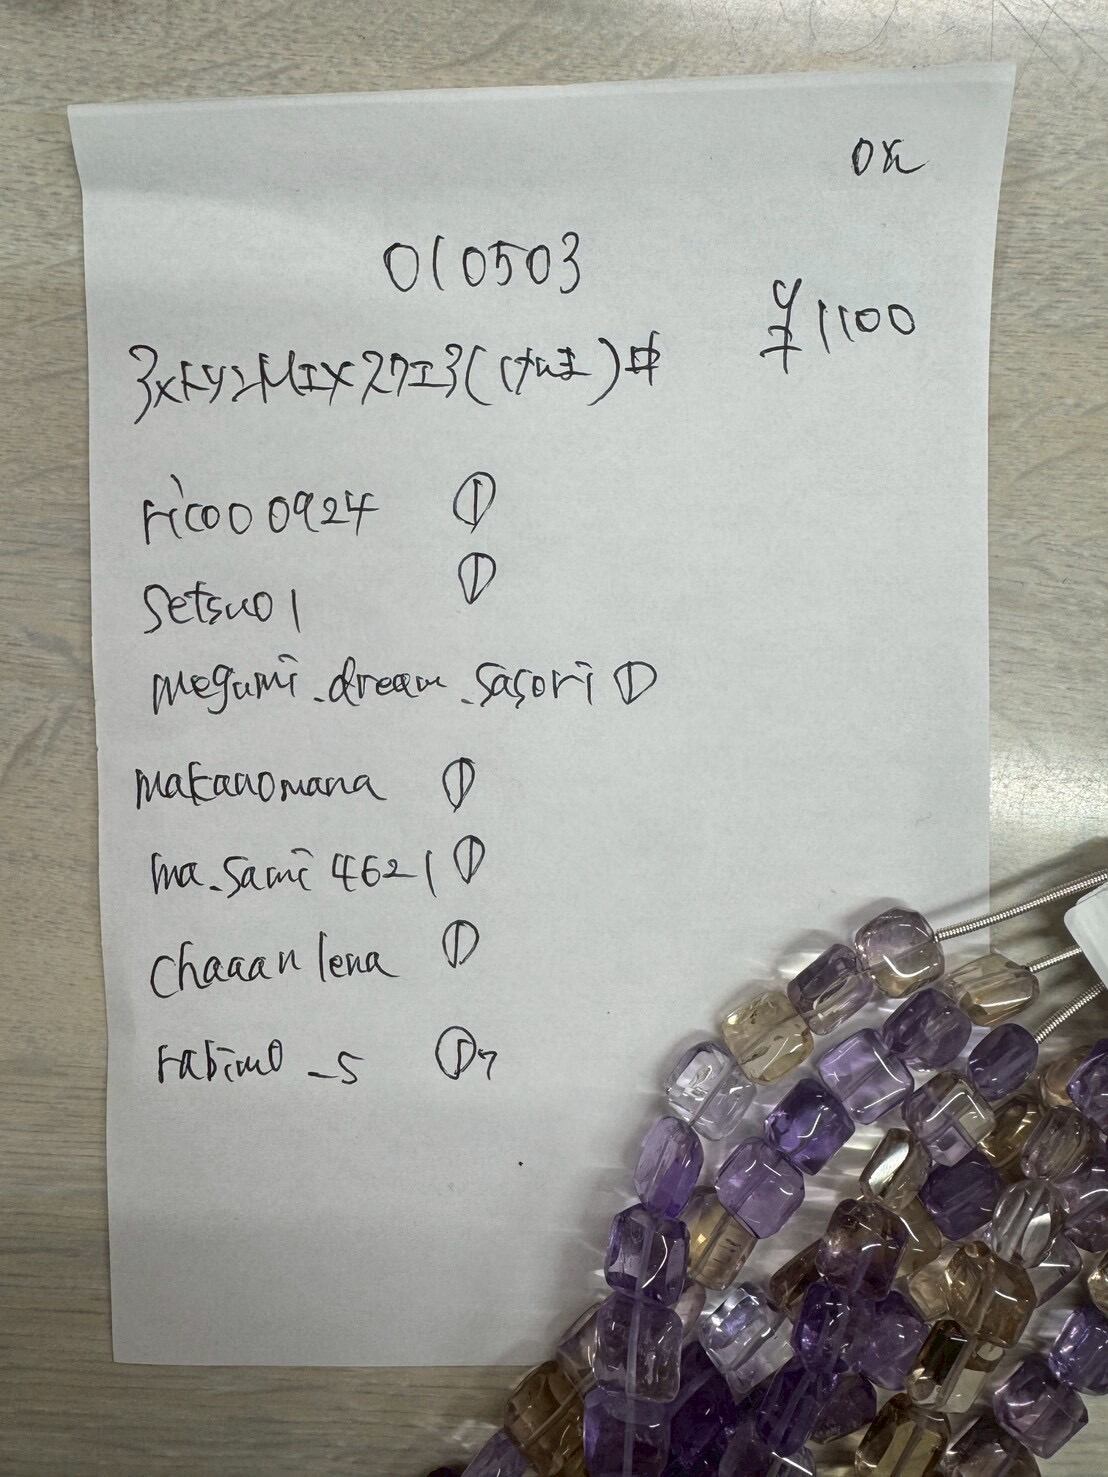 OK
010503
¥1100
rico00924 ①
setsuo1 ①
megumi_dream_sasori ①
makanomana ①
ma_sami4621 ①
chaaanlena ①
rabimo_s ①